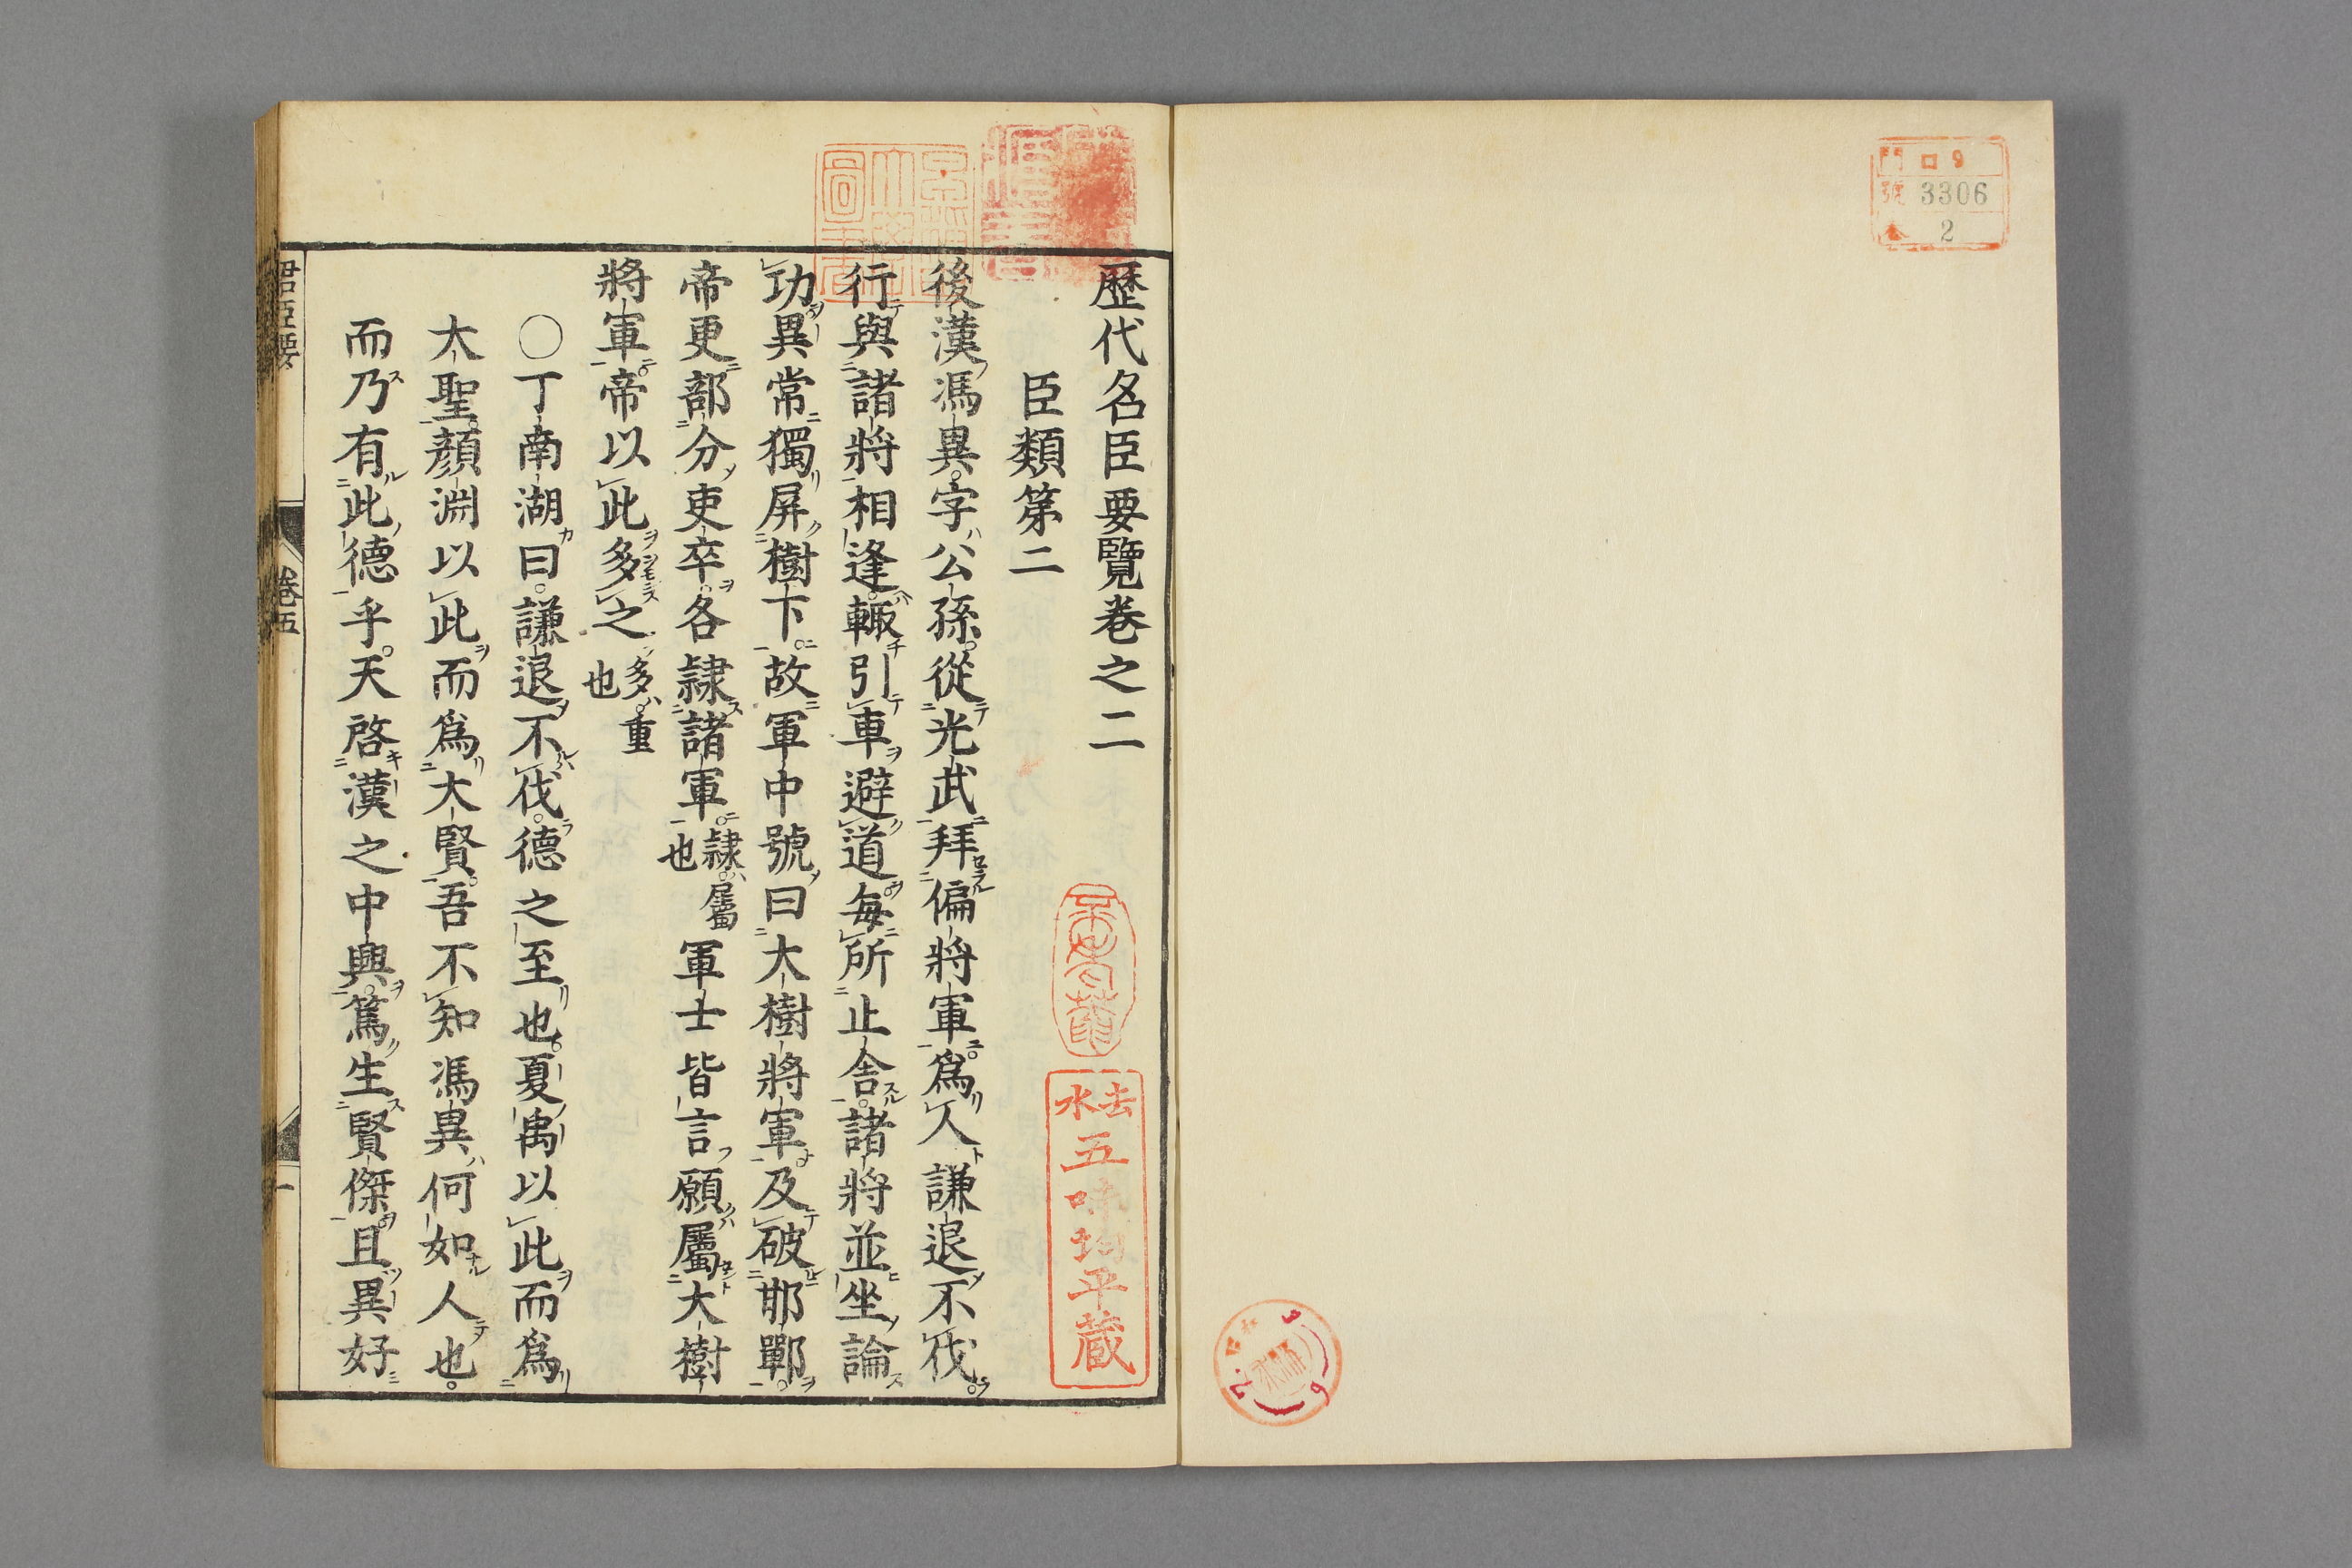 門 口9
號 3306
卷 2
歷代名臣要覽卷之二
臣類第二
後漢馮異字公孫從光武拜偏將軍爲人謙退不伐
行與諸將相逢輙引車避道每所止舍諸將並坐論
功異常獨屏樹下故軍中號曰大樹將軍及破邯鄲
帝更部分吏卒各隷諸軍隷屬也軍士皆言願屬大樹
將軍帝以此多之多重也
〇丁南湖曰謙退不伐德之至也夏禹以此而爲
大聖顏淵以此而爲大賢吾不知馮異何如人也
而乃有此德乎天啓漢之中興篤生賢傑且異好
君臣要
卷五
一
去水
五味均平蔵